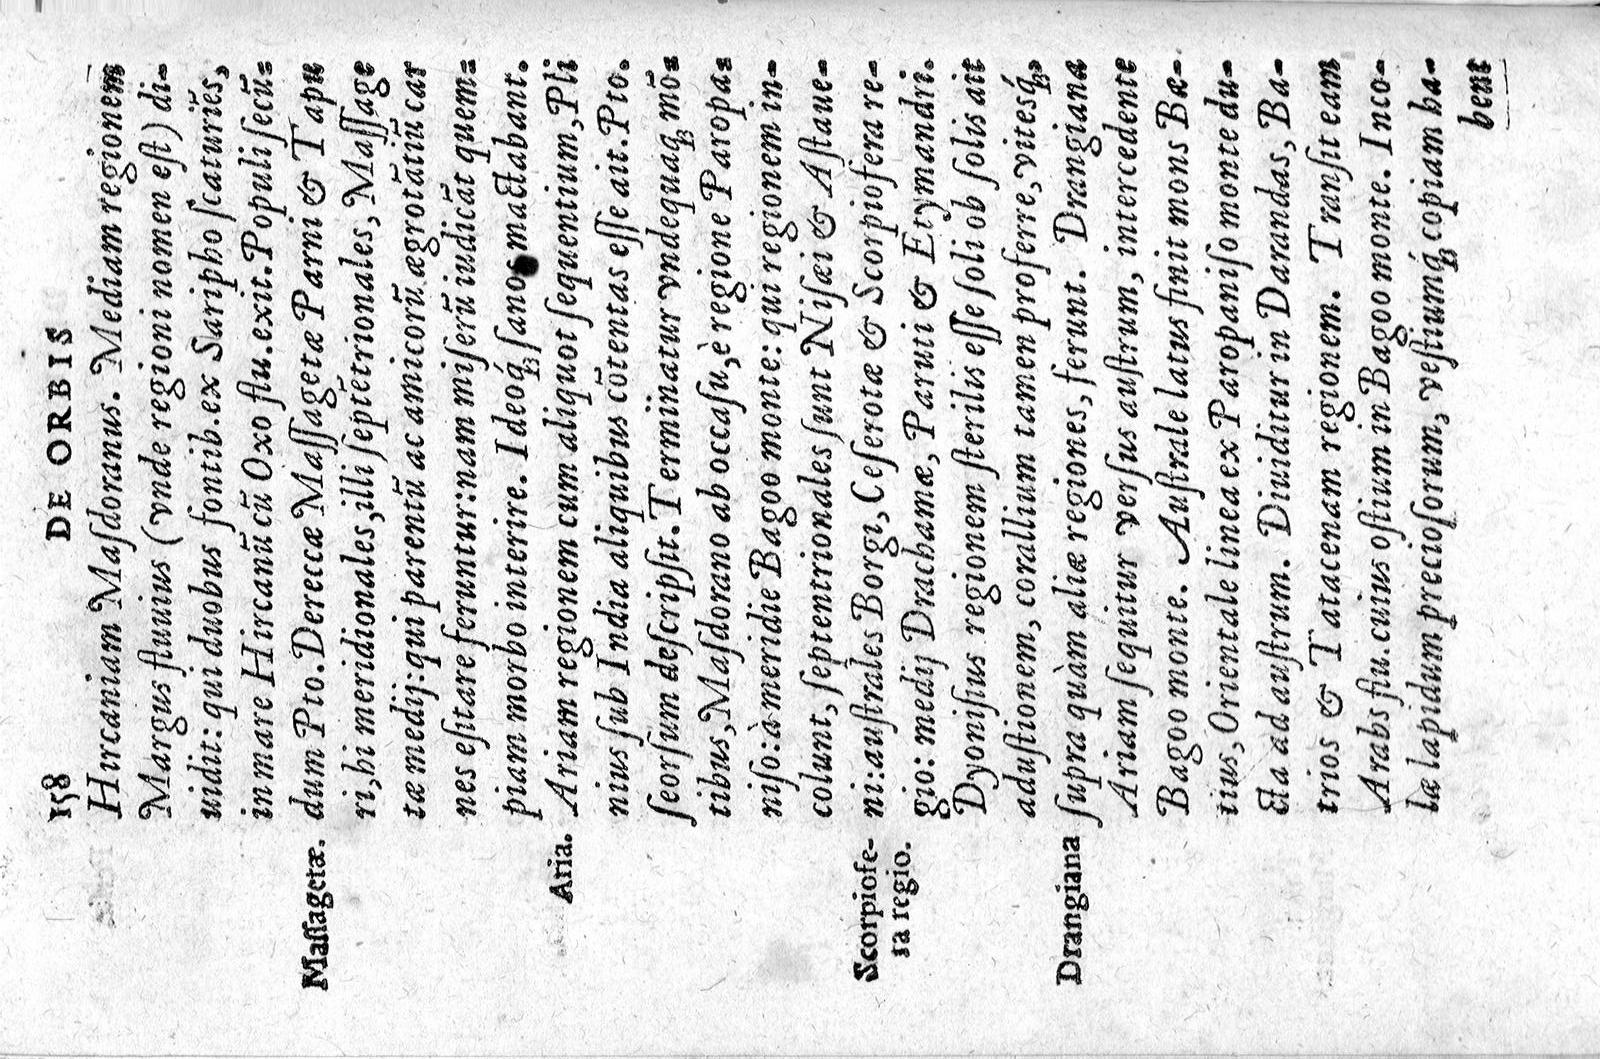 158 DE ORBIS
Hircaniam Maſdoranus. Mediam regionem
Margus fluuius (vnde regioni nomen eſt) di-
uidit: qui duobus fontib. ex Saripho ſcaturiẽs,
in mare Hircanũ cũ Oxo flu. exit. Populi ſecũ-
Maſſagetæ. dum Pto. Dereccæ Maſſagetæ Parni & Tapu
ri, hi meridionales, illi ſeptẽtrionales, Maſſage
tæ medij: qui parentũ ac amicorũ ægrotãtiũ car
nes eſitare feruntur: nam miſerũ iudicãt quem-
piam morbo interire. Ideoq́; ſanos mactabant.
Aria. Ariam regionem cum aliquot ſequentium, Pli
nius ſub India aliquibus cõtentas eſſe ait. Pto.
ſeorſum deſcripſit. Terminatur vndequaq; mõ-
tibus, Maſdorano ab occaſu, è regione Paropa-
niſo: à meridie Bagoo monte: qui regionem in-
colunt, ſeptentrionales ſunt Niſæi & Aſtaue-
Scorpiofe- ni: auſtrales Borgi, Ceſerotæ & Scorpiofera re-
ra regio. gio: medij Drachamæ, Paruti & Etymandri.
Dyoniſius regionem ſterilis eſſe ſoli ob ſolis ait
aduſtionem, corallium tamen proferre, vitesq́;
Drangiana ſupra quàm aliæ regiones, ferunt. Drangiana
Ariam ſequitur verſus auſtrum, intercedente
Bagoo monte. Auſtrale latus finit mons Bæ-
tius, Orientale linea ex Paropaniſo monte du-
cta ad auſtrum. Diuiditur in Darandas, Ba-
trios & Tatacenam regionem. Tranſit eam
Arabs flu. cuius oſtium in Bagoo monte. Inco-
læ lapidum precioſorum, veſtiumq́; copiam ha-
bent